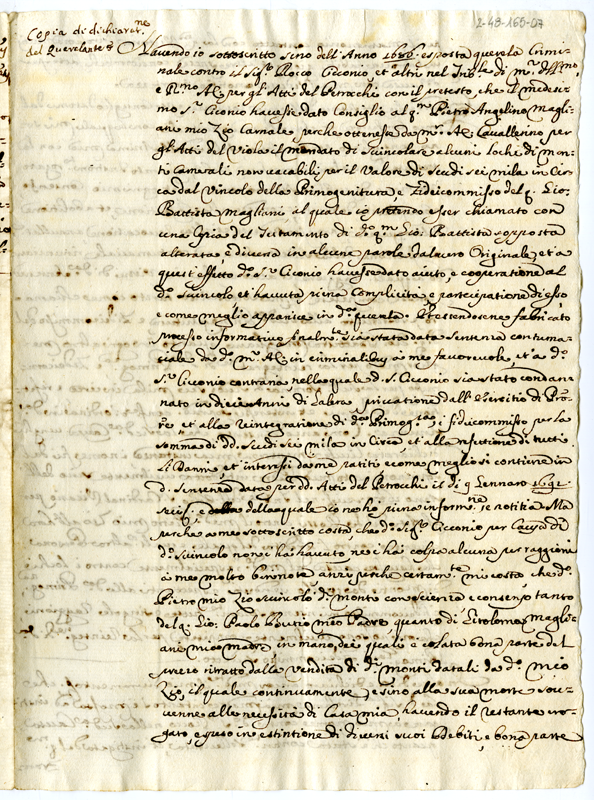 2-48-165-07
Copia di dichiarat.ne
del Querelante
Havendo io sottoscritto sino dell'Anno 1686. esposta querela Crimi-
nale contro il Sig.r Rocco Ciconio, et altri nel Trib.le di m.r
e R.mo AC. per gl'Atti del Petrocchi con il pretesto, che il medesi-
mo S.r Ciconio havesse dato Consiglio al q.m Pietro Angelino Magli-
ani mio Zio Carnale, perche ottenesse da m.r AC. Cavallerino per
gl'Atti del Viola il mandato di svincolare alcuni lochi di mon-
ti Camerali non vacabili per il Valore di scudi sei mila in Cir-
ca dal Vincolo della Primogenitura, e Fideicommisso del q. Gio:
Battista Magliani al quale io pretendo esser chiamato con
una Copia del Testamento di d.o q.m Gio: Battista supposta
alterata, e diversa in alcune parole dal vero Originale, et a
quest'effetto d.o S.r Ciconio havesse dato aiuto, e cooperatione al
d.o svincolo et havuta piena Complicità, e participatione di esso
e come meglio apparisce in d.a querela. Pretendosene fabricato
processo informativo finalm.te sia stata data sentenza contuma-
ciale da d.o m.r AC. in criminalibus à me favorevole, et a d.o
S.r Ciconio contraria, nella quale d. S. Ciconio sia stato condan-
nato in dieci Anni di Galera, privatione dall'esercitio di Pro-
re, et alla reintegratione di d.a Primog.ra, i fideicommisso per la
somma di dd. Scudi sei mila in Circa, et alla refettione di tutti
li Danni, et interessi da me patiti e come meglio si contiene in
d. sentenza data per dd. Atti del Petrocchi il dì 9 Gennaro 1692.
e della quale io no ho piena inform.ne, ne notitia. Ma
perche a me sottoscritto costa, che d.o Sig.r Ciconio per Causa di
d.o svincolo non c'hà havuto ne c'hà colpa alcuna per raggioni
à me molto ben note, anzi perche certam.te mi costa che d.o
Pietro mio Zio svincolò d.i monti con scienza e consenso tanto
del q. Gio: Paolo mio Padre, quanto di Girolema Magli-
ani mia madre in mano, dei quali è colata bona parte del
prezzo ritratto dalla vendita di d.i monti datali da d.o mio
Zio, il quale continuamente, e sino alla sua morte sov-
venne alle necessità di Casa mia, havendo il restante ero-
gato, e speso in estintione di diversi suoi debiti, e bona parte